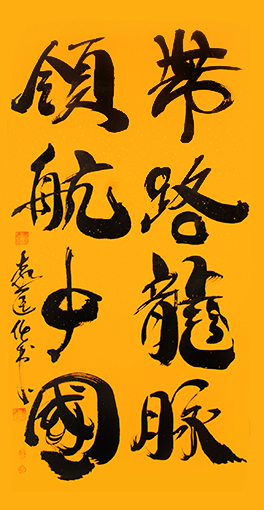 帶路龍脈
領航中國